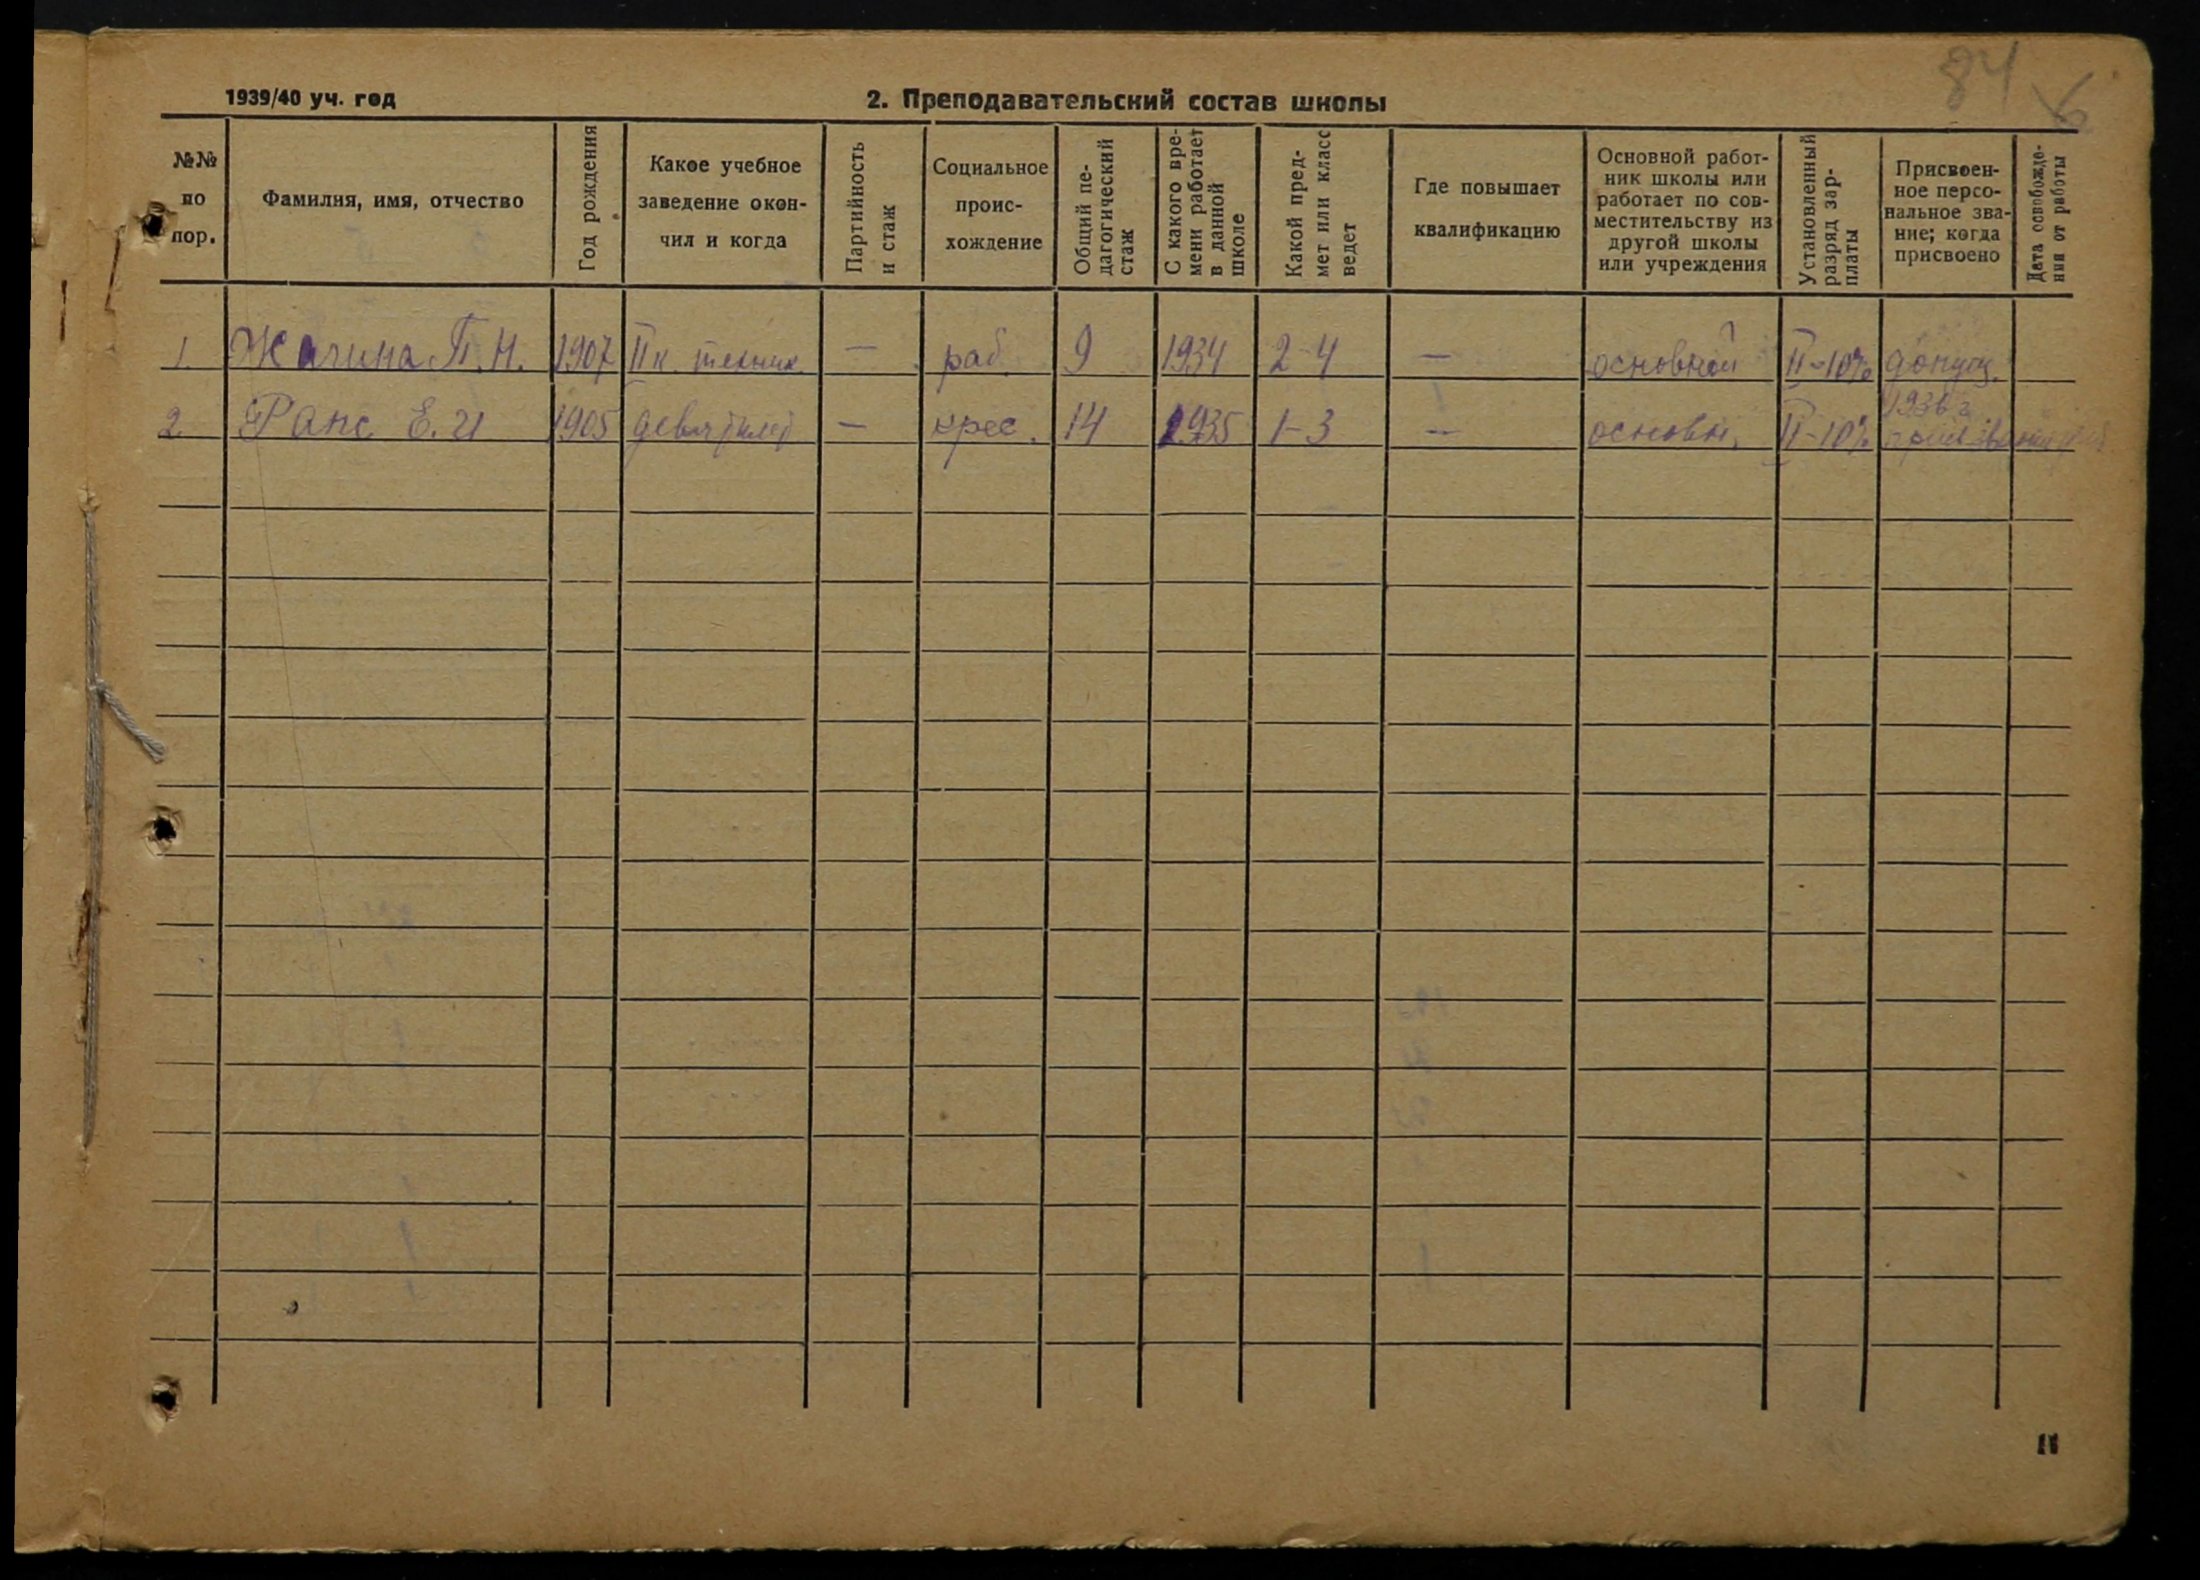 84
1939/40 уч. год
2. Преподавательский состав школы
№№ по пор.
Фамилия, имя, отчество
Год рождения
Какое учебное заведение окон-
чил и когда
Партийность и стаж
Социальное проис-
хождение
Общий пе-
дагогический стаж
С какого вре-
мени работает в данной школе
Какой пред-
мет или класс ведет
Где повышает квалификацию
Основной работ-
ник школы или работает по сов-
местительству из другой школы или учреждения
Установленный разряд зар-
платы
Присвоен-
ное персо-
нальное зва-
ние; когда присвоено
Дата освобожде-
ния от работы
1. П. Н. 1907 II к. техник. — раб. 9 1934 2-4 — основной II-10% допущ.
2. Ранс Е. И 1905 девятилет — крес. 14 1935 1-3 — основн. II-10% 1936 г
11